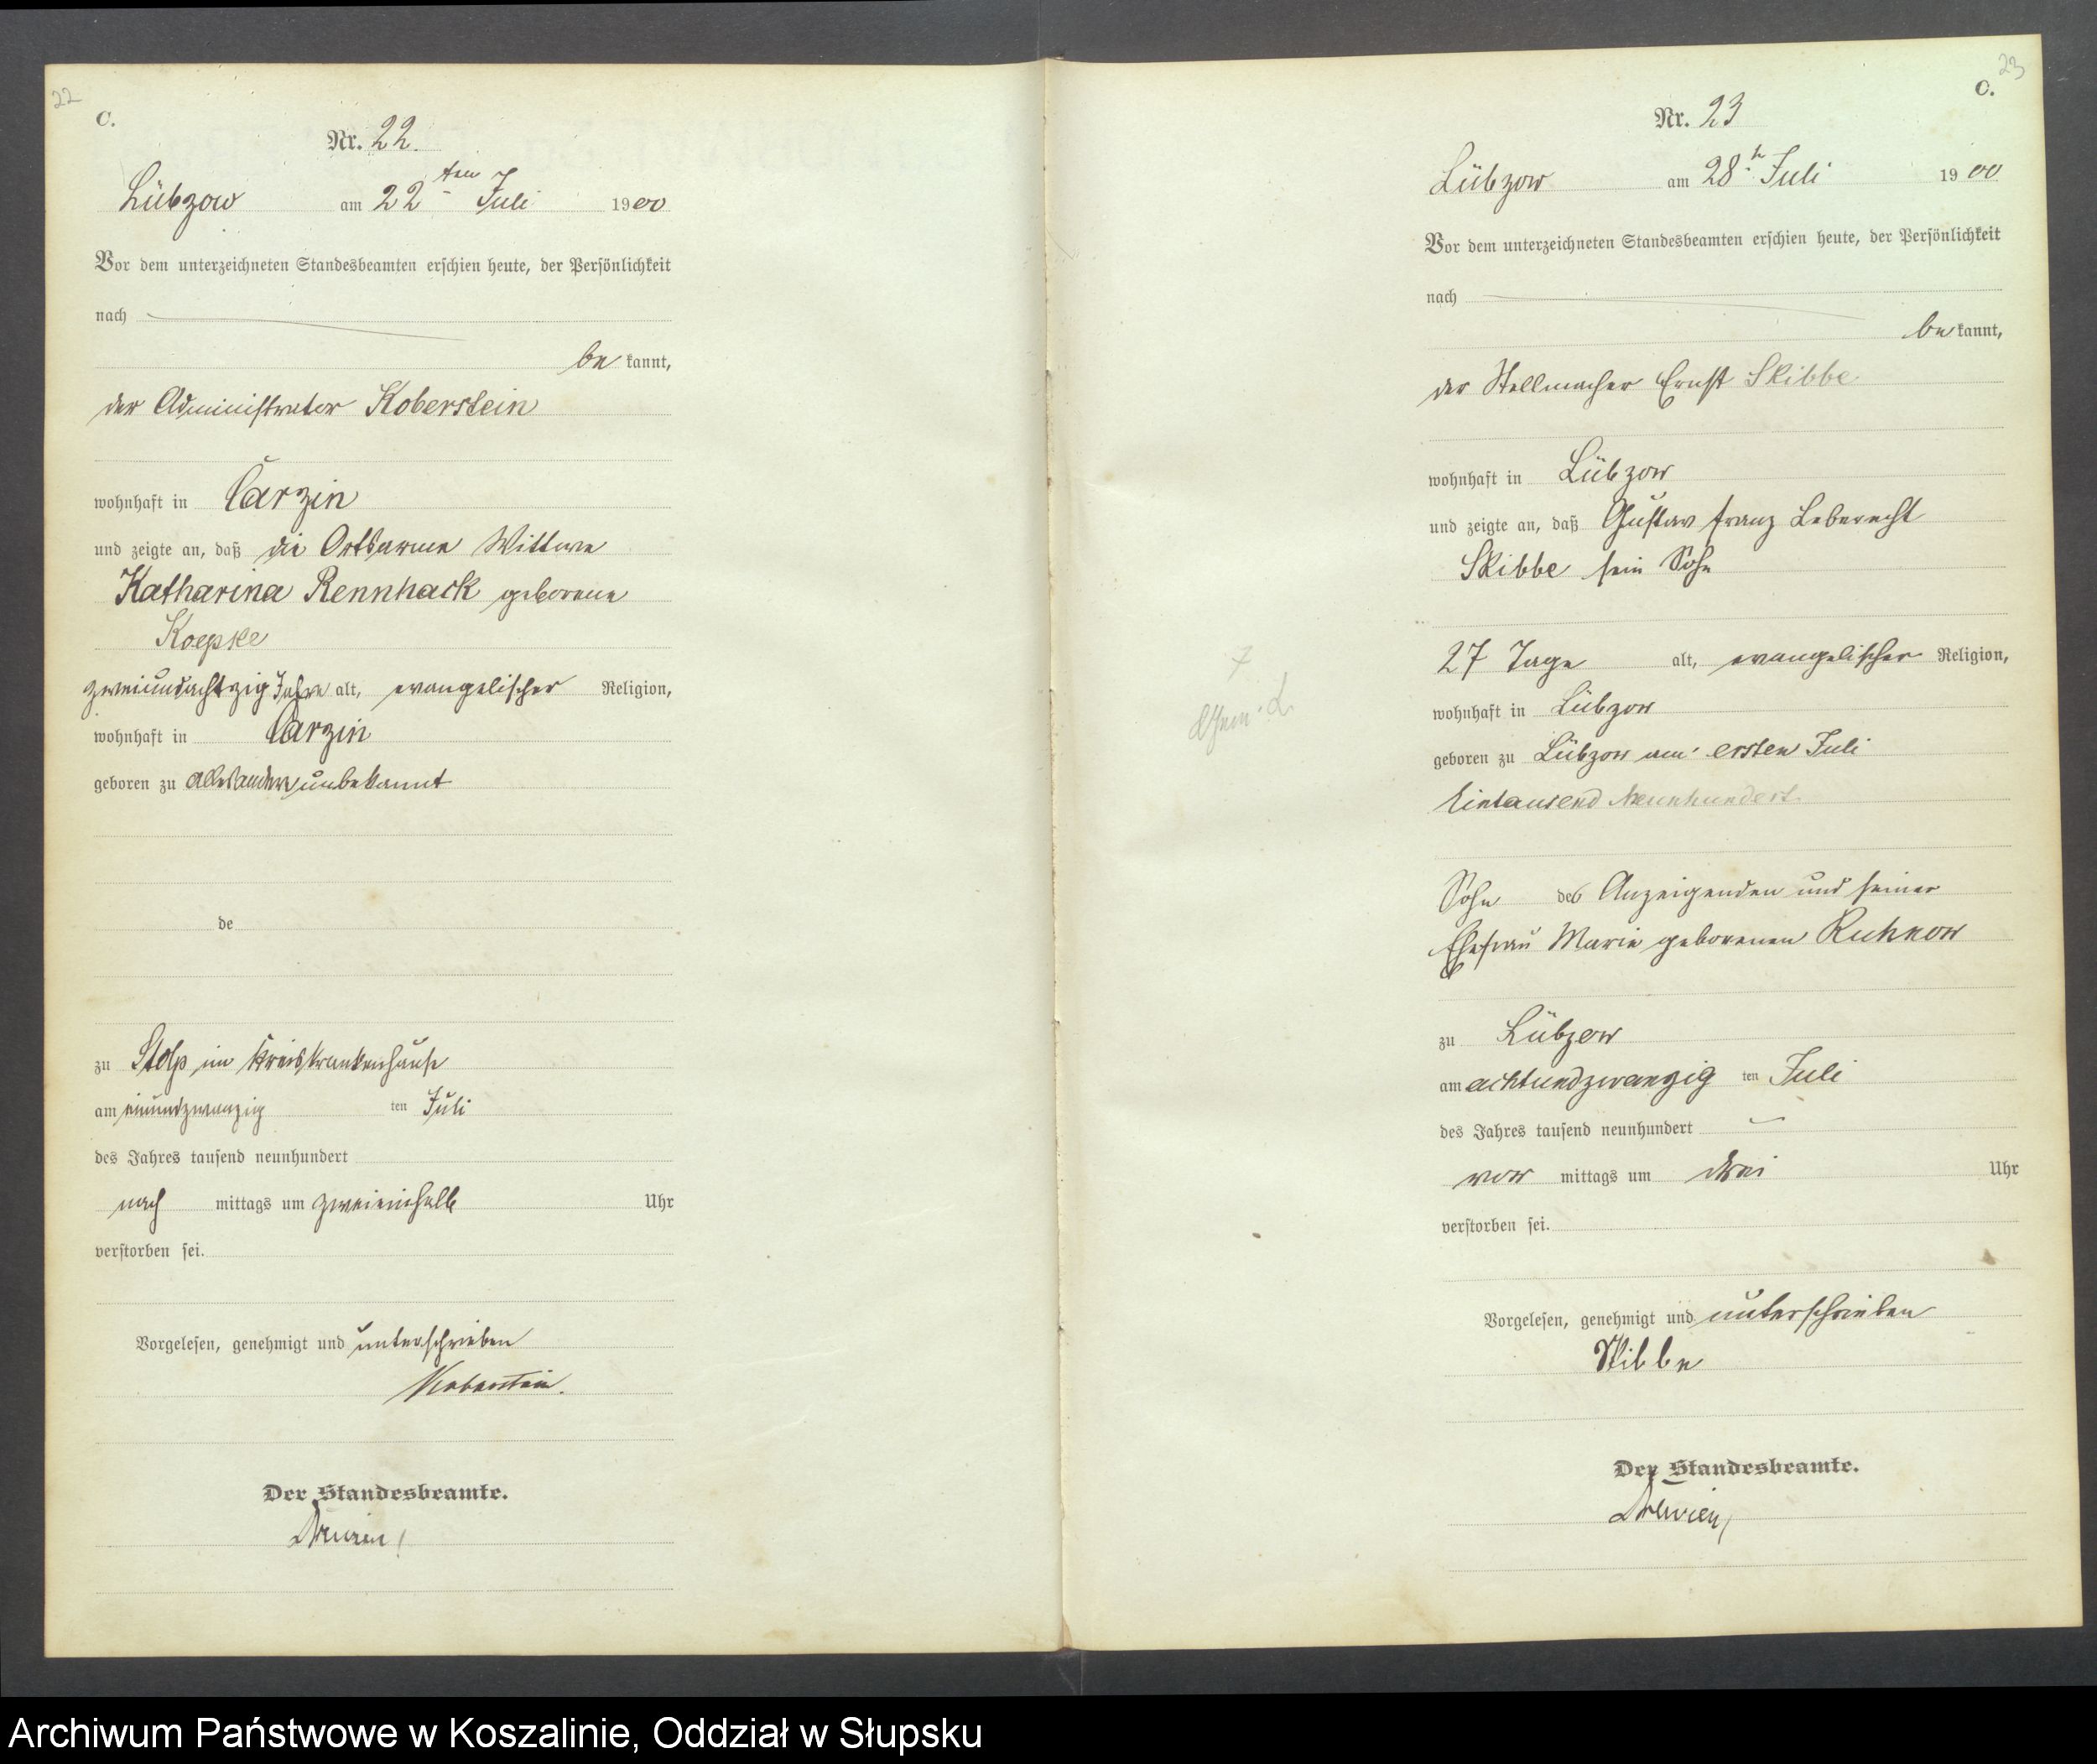 22
C.
Nr. 22.
Lübzow am 22ten Juli 1900
Vor dem unterzeichneten Standesbeamten erschien heute, der Persönlichkeit
nach
be kannt,
der Administrator Koberstein
wohnhaft in Carzin
und zeigte an, daß die Ortsarme Wittwe
Katharina Rennhack geborene
Koepke
zweiundachtzig Jahre alt, evangelischer Religion,
wohnhaft in Carzin
geboren zu alles andere unbekannt
de
zu Stolp im Kreiskrankenhause
am einundzwanzig ten Juli
des Jahres tausend neunhundert
nach mittags um zweieinhalb Uhr
verstorben sei.
Vorgelesen, genehmigt und unterschrieben
Koberstein.
Der Standesbeamte.
23
C.
Nr. 23
Lübzow am 28tn Juli 1900
Vor dem unterzeichneten Standesbeamten erschien heute, der Persönlichkeit
nach
be kannt,
der Stellmacher Ernst Skibbe
wohnhaft in Lübzow
und zeigte an, daß Gustav Franz Leberecht
Skibbe sein Sohn
27 Tage alt, evangelischer Religion,
wohnhaft in Lübzow
geboren zu Lübzow am ersten Juli
Eintausend Neunhundert.
Sohn des Anzeigenden und seiner
Ehefrau Marie geborenen Ruhnow
zu Lübzow
am achtundzwanzig ten Juli
des Jahres tausend neunhundert
vor mittags um drei Uhr
verstorben sei.
Vorgelesen, genehmigt und unterschrieben
Skibbe
Der Standesbeamte.
Archiwum Państwowe w Koszalinie, Oddział w Słupsku